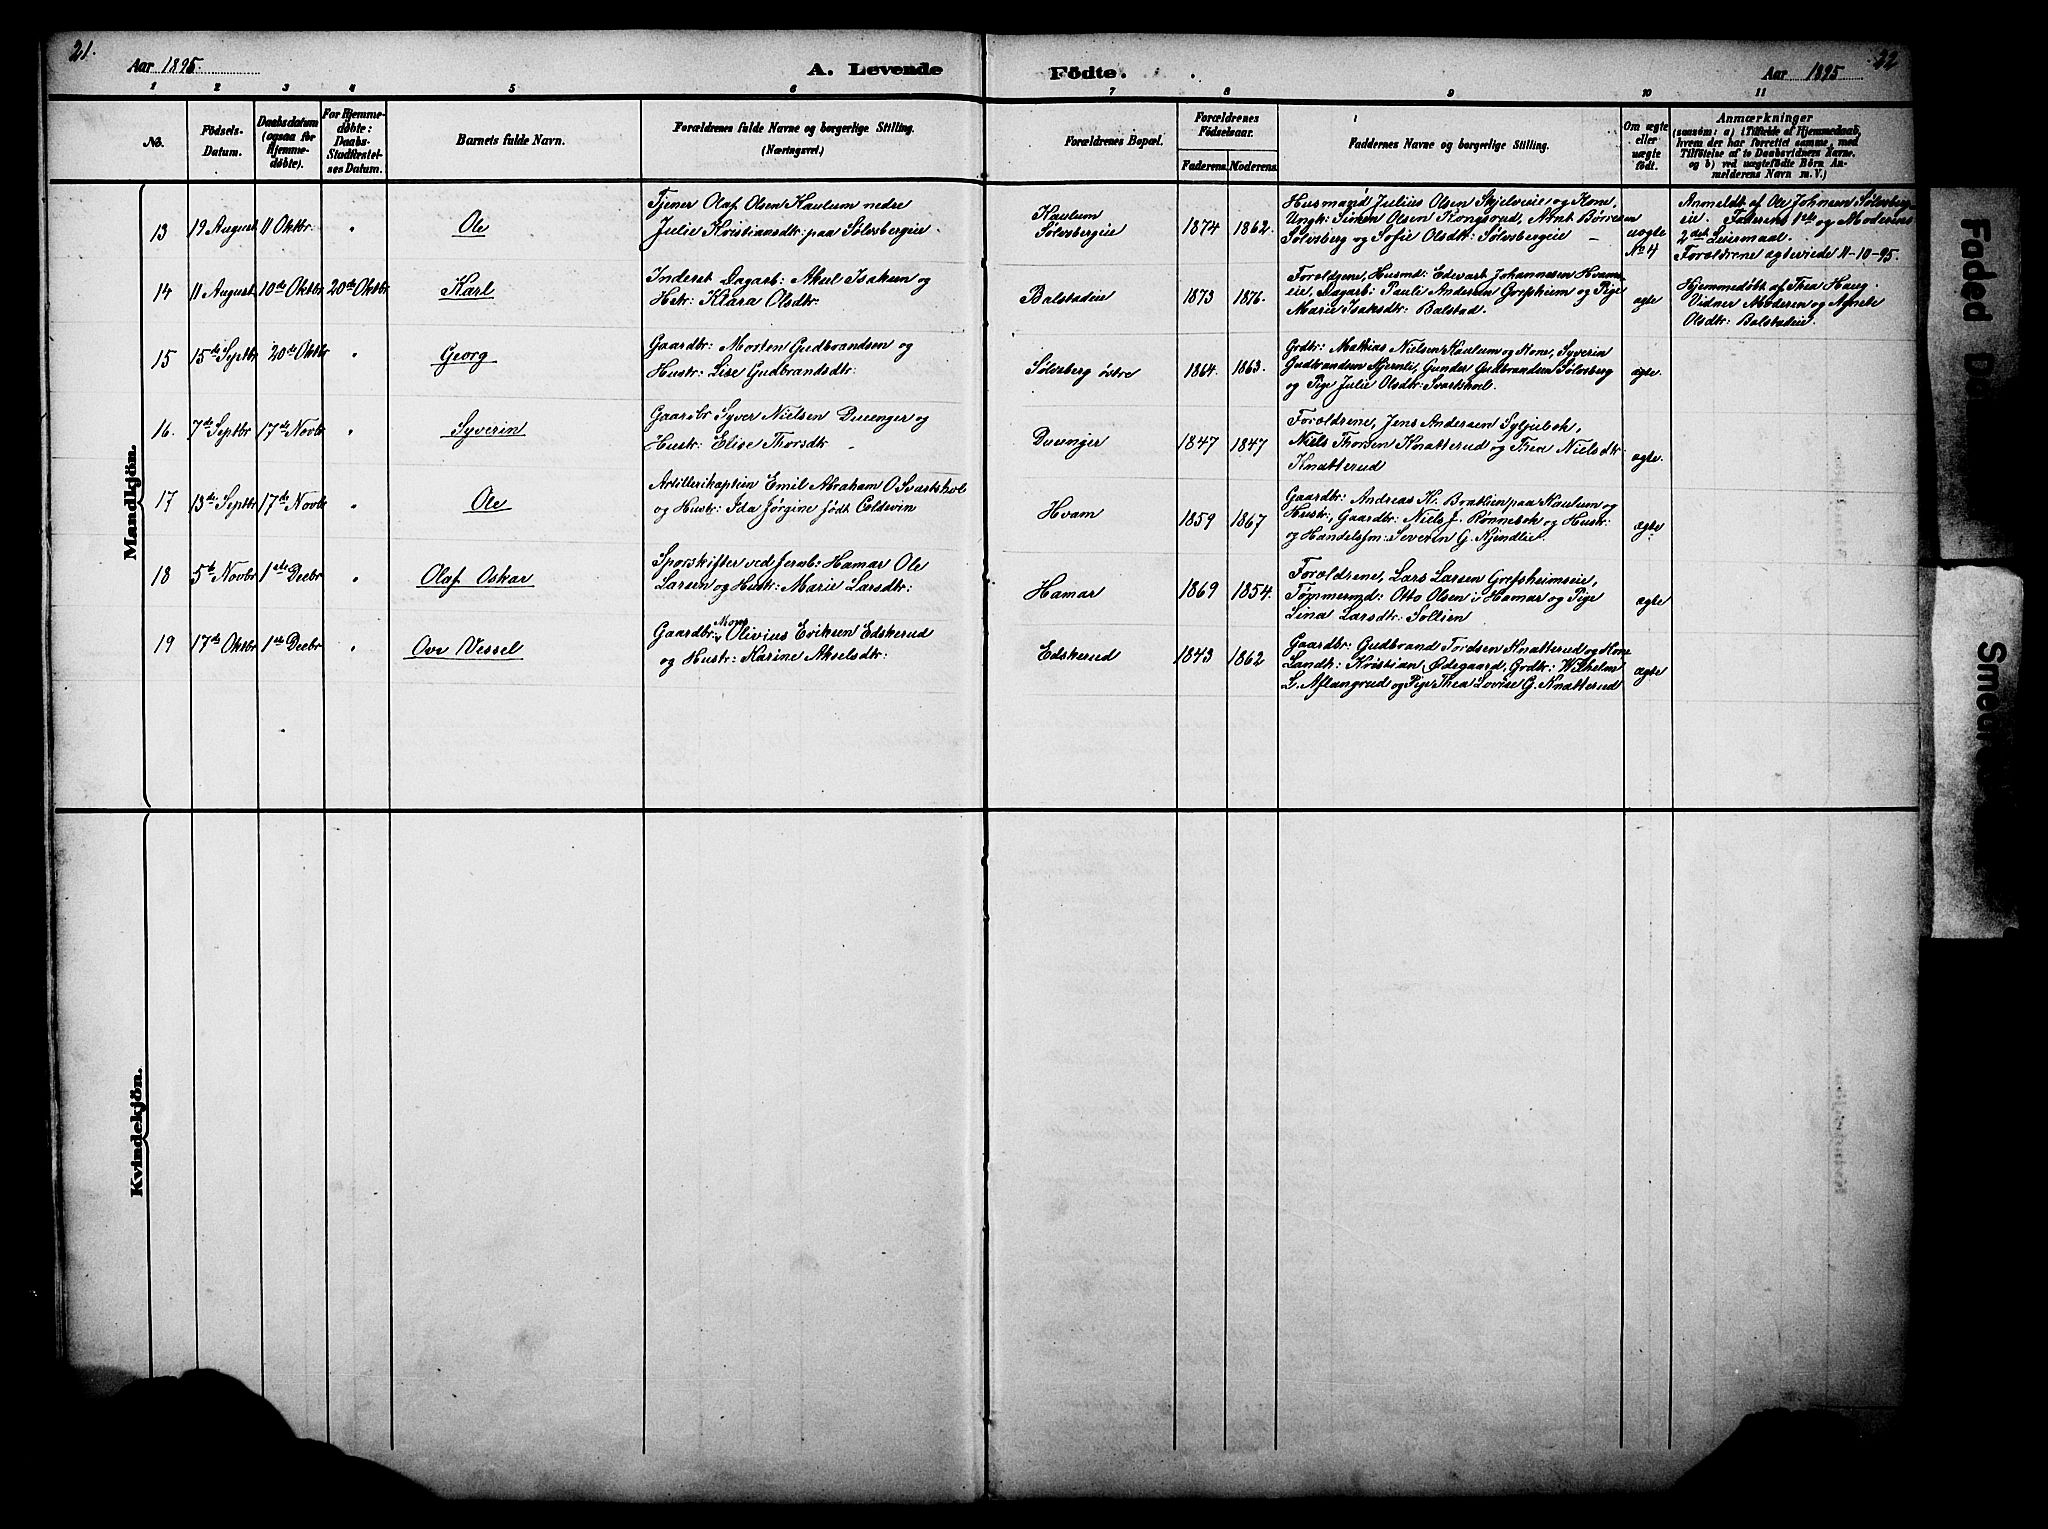 21.
Aar 1895.
A. Levende
Födte.
Aar 1895
22
1 2 3 4 5 6 7 8 9 10 11
No.
Födsels-Datum.
Daabsdatum (ogsaa for Hjemmedøbte).
For Hjemmedøbte: Daabs-Stadfæstelses Datum.
Barnets fulde Navn.
Forældrenes fulde Navne og borgerlige Stilling.
(Næringsvei.)
Forældrenes Bopæl.
Forældrenes Födselsaar.
Faderens. Moderens.
Faddernes Navne og borgerlige Stilling.
Om ægte eller uægte födt.
Anmærkninger
(saasom: a) i Tilfælde af Hjemmedaab,
hvem der har forrettet samme, med
Tilföielse af to Daabsvidners Navne,
og b) ved uægtefödte Börn Anmelderens Navn m. V.)
Mandkjön.
13 19 August 11 Oktbr. " Ole
Tjener Olaf Olsen Kaulum nedre
Julie Kristiansdtr: paa Sølvsbergeie.
Kaulum
Sølvsbergeie
1874 1862.
Husmand Julius Olsen Skjelveie og Kone,
Ungk: Simen Olsen Kongsrud, Børresen
Sølvsberg og Sofie Olsdtr: Sølvsbergeie –
uægte
No 4
Anmeldt af Ole Johnsen Sølvsberg-
eie. Faderens 1ste og Moderens
2det Leiermaal.
Foræeldrene ægteviede 11-10-95.
14 11 August 10de Oktbr 20de Oktbr Karl
Inderst Dagarb: Aksel Isaksen og
Hstr: Klara Olsdtr:
Balstadeie
1873 1876.
Forældrene, Husmd: Edevart Johannesen Hvams-
eie, Dagarb: Pauli Andersen Grefsheim og Pige
Marie Isaksdtr: Balstad.
ægte
Hjemmedøbt af Thea Haug.
Vidner Moderen og Agnete
Olsdtr: Balstadeie.
15 15de Septbr 20de Oktbr " Georg
Gaardbr: Morten Gudbrandsen og
Hustr: Lise Gudbrandsdtr:
Sølvsberg østre
1864. 1863.
Grdbr: Mathias Nielsen Kaulum og Kone, Syverin
Gudbrandsen Hjemli, Gunder Gudbrandsen Sølvsberg
og Pige Julie Olsdtr: Svartshol.
ægte.
16. 7de Septbr 17de Novbr " Syverin
Gaardbr Syver Nielsen Duenger og
Hustr: Elise Thorsdtr:
Duenger
1847 1847
Forældrene, Jens Andersen Syljubek,
Niels Thorsen Knatterud og Thea Nielsdtr:
Knatterud
ægte.
17 13de Septbr 17de Novbr " Ole
Artillerikaptein Emil Abraham O Svartshol
og Hustr: Ida Jørgine født Coldevin
Hvam
1859 1867
Gaardbr: Andreas K. Bratlien paa Kaulum og
Hustr:, Gaardbr: Niels J. Rønnebek og Hustr:
og Handelsfm: Severin G. Kjendlie.
ægte
18 5te Novbr 1ste Decbr " Olaf Oskar
Sporskifter ved Jernb: Hamar Ole
Larsen og Hustr: Marie Larsdtr:
Hamar
1869 1854.
Forældrene, Lars Larsen Grefsheimseie,
Tømmermd: Otto Olsen i Hamar og Pige
Lina Larsdtr: Sollien
ægte
19 17de Oktbr 1ste Decbr " Ove Vessel
Gaardbr: Olivius Eriksen Edskerud
og Hustr: Karine Akselsdtr:
Edskerud
1843 1862
Gaardbr: Gudbrand Tordsen Knatterud og Kone
Landh: Kristian Ødegaard, Grdbr: Wilhelm
L. Aflangrud og Pige Thea Lovise G. Knatterud
ægte
Kvindekjön.
Faded
Smed